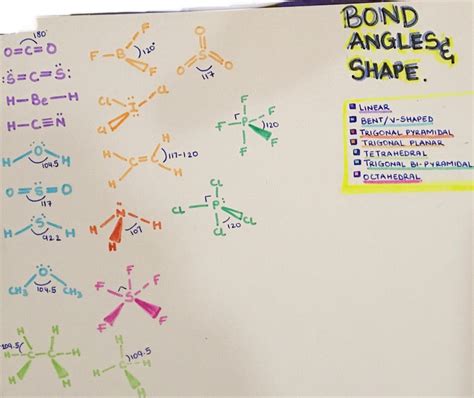 BOND
ANGLES &
SHAPE.
LINEAR
BENT/V-SHAPED
TRIGONAL PYRAMIDAL
TRIGONAL PLANAR
TETRAHEDRAL
TRIGONAL BI-PYRAMIDAL
OCTAHEDRAL
180°
O=C=O
:S=C=S:
H-Be-H
H-C≡N
O
H H
104.5
O=S=O
117
S
H H
92.2
O
CH3 CH3
104.5
H H
109.5 H-C-C-H
H H
F-B-F
F
120°
O
S
O O
117
Cl I Cl
Cl
H H
C=C
H H
117-120
N
H H H
107
F
F S F
F F
H
C
H H H
109.5
F
F-P-F
F F
120
Cl
Cl-P: Cl
Cl
120